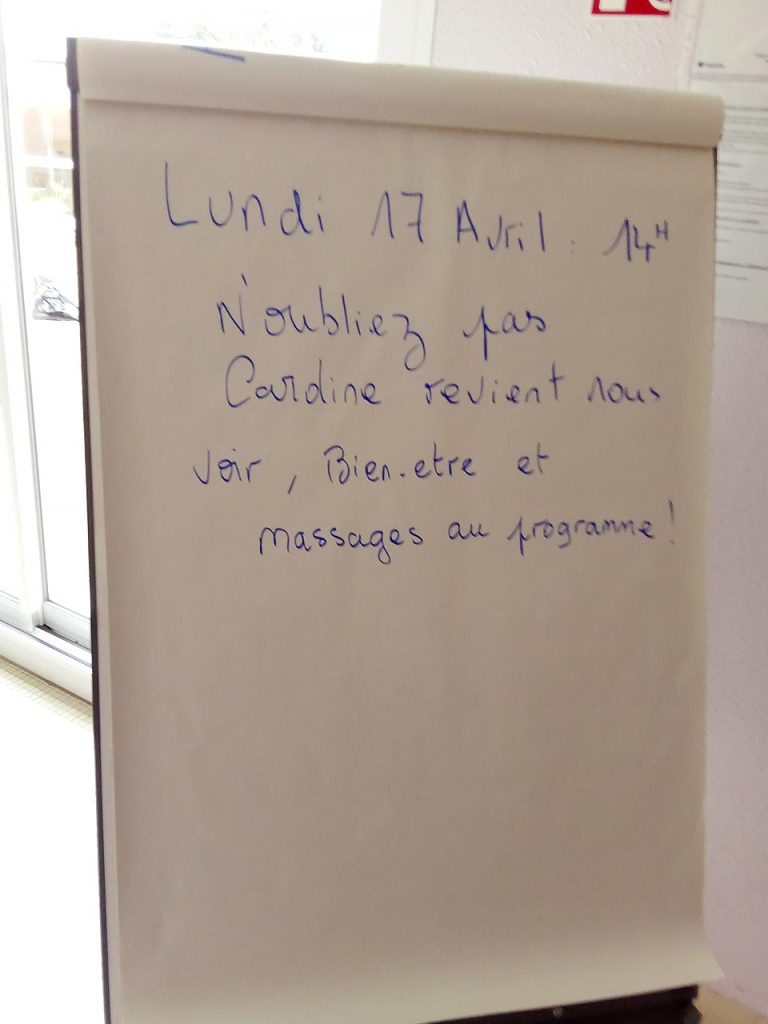 Lundi 17 Avril : 14H
N'oubliez pas
Cardine revient nous
voir, Bien-etre et
massages au programme !